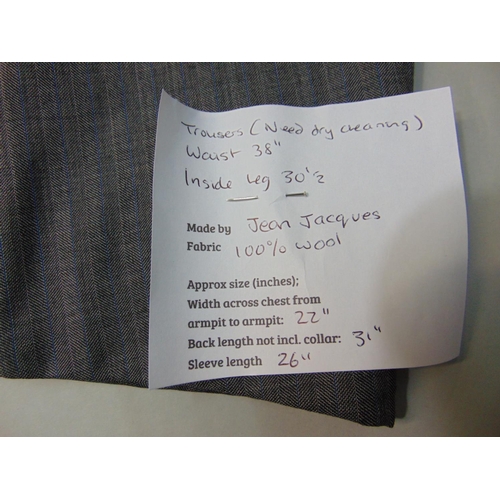 Trousers (Need dry cleaning)
Waist 38"
Inside leg 30'½
Made by Jean Jacques
Fabric 100% wool
Approx size (inches);
Width across chest from
armpit to armpit: 22"
Back length not incl. collar: 31"
Sleeve length 26"